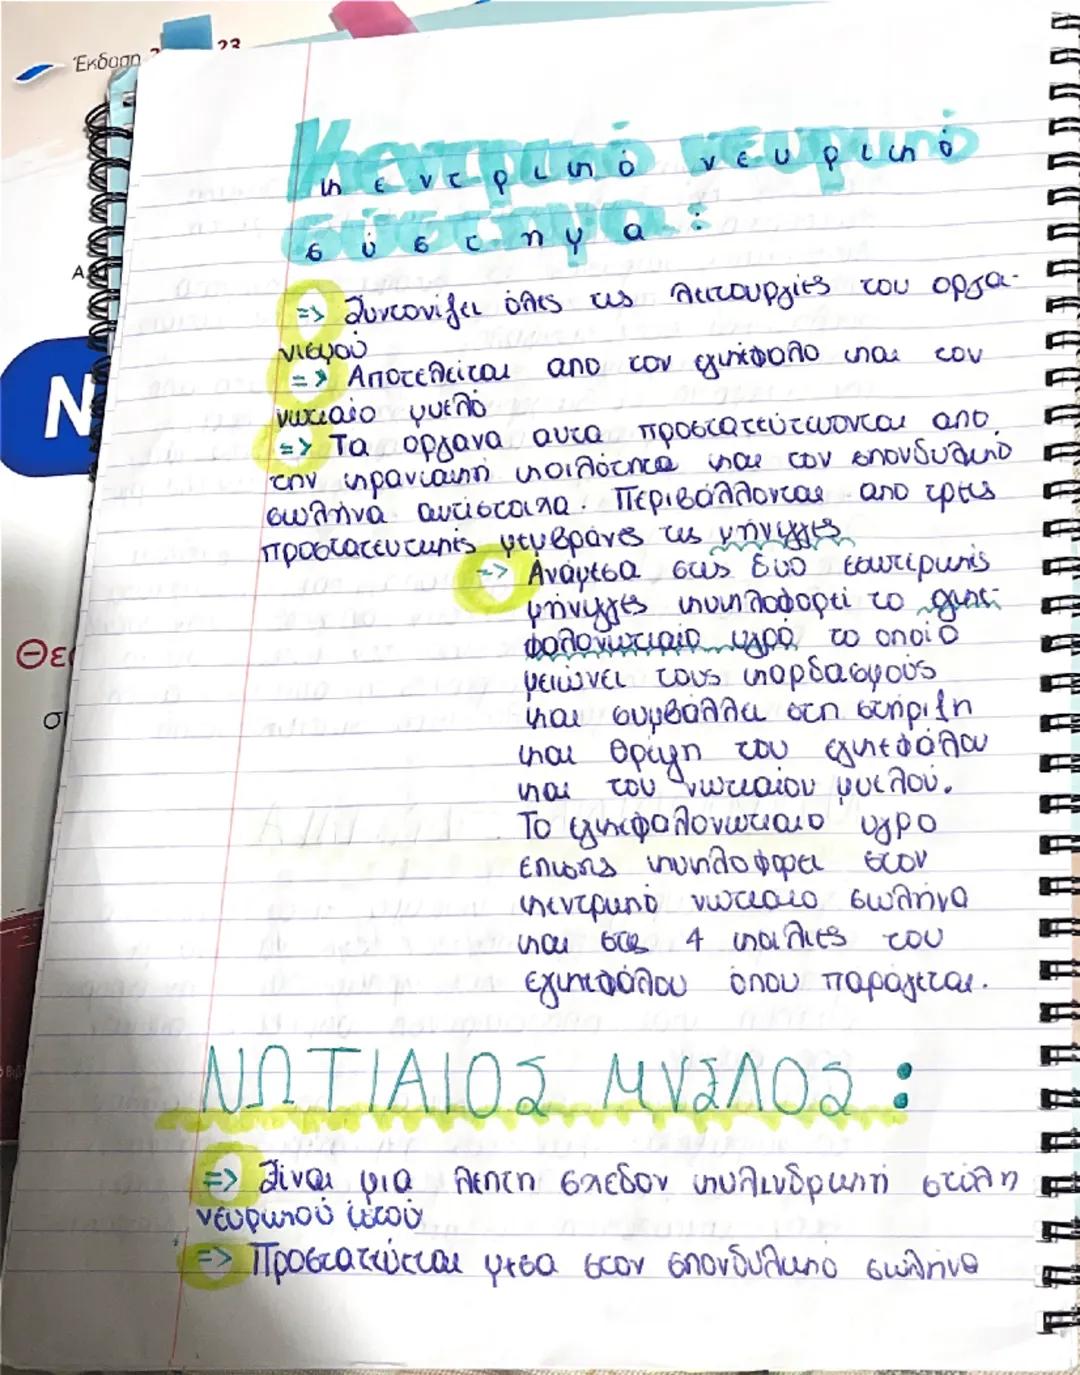 Έκδοση 23
Κεντρικό νευρικό
σύστημα:
Συντονίζει όλες τις λειτουργίες του οργα-
νισμού
=> Αποτελείται απο τον εγκέφαλο και τον
νωτιαίο μυελό
=> Τα οργανα αυτα προστατεύτωονται απο
την κρανιακή κοιλότητα και τον σπονδυλικό
σωλήνα αντίστοιχα. Περιβάλλονται απο τρεις
προστατευτικές μεμβράνες τις μήνιγγες
=> Ανάμεσα στις δυο εσωτερικές
μήνιγγες κυκλοφορεί το εγκε-
φαλονωτιαίο υγρό το οποίο
μειώνει τους κραδασμούς
και συμβάλλει στη στήριξη
και θρέψη του εγκεφάλου
και του νωτιαίου μυελού.
Το εγκεφαλονωτιαιο υγρο
επισης κυκλοφορει στον
κεντρικό νωτιαιο σωλήνα
και στις 4 κοιλίες του
εγκεφάλου όπου παράγεται.
ΝΩΤΙΑΙΟΣ ΜΥΕΛΟΣ :
=> Είναι μια λεπτη σχεδον κυλινδρική στήλη
νευρικού ιστού
=> Προστατεύεται μεσα στον σπονδυλικό σωλήνα
Ν
Θε
σ